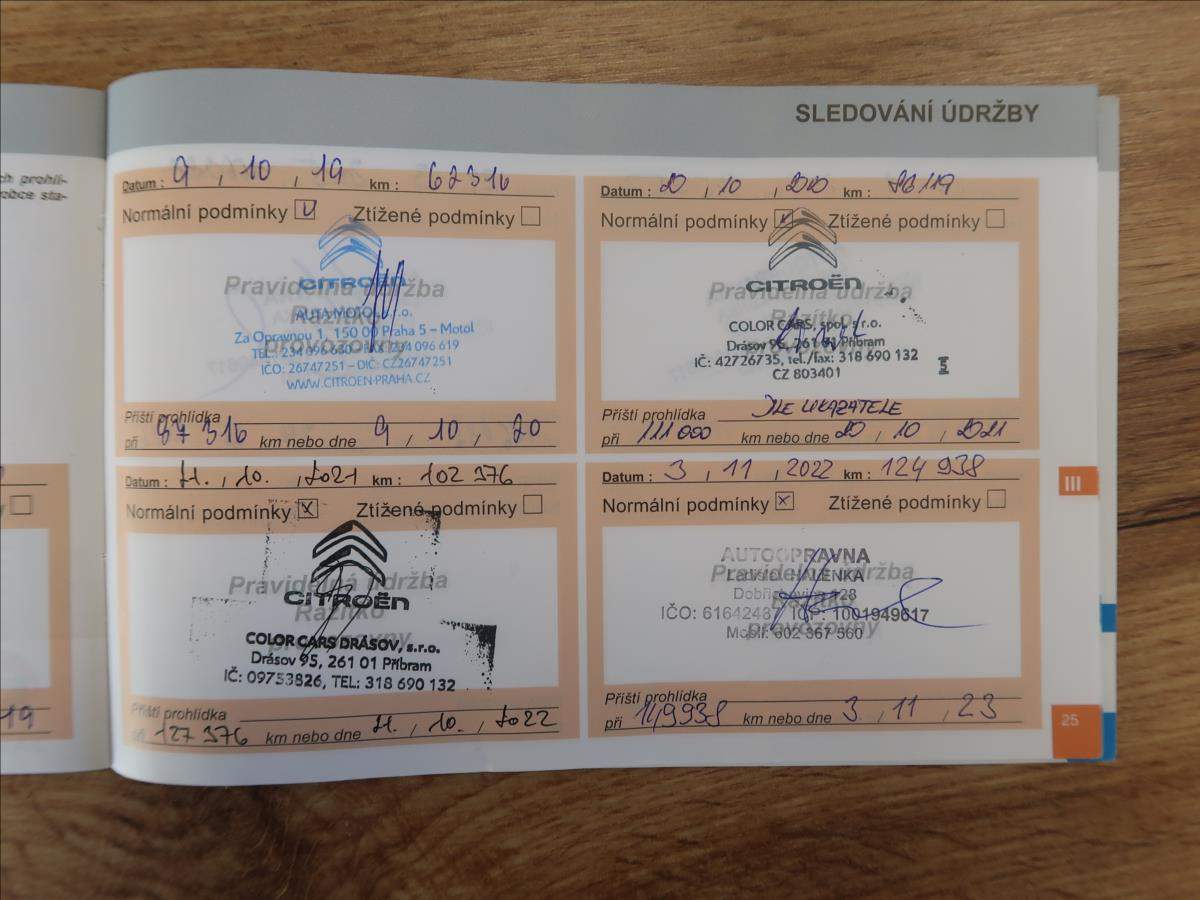 ch prohlí-
obce sta-
19
SLEDOVÁNÍ ÚDRŽBY
Datum : 9 , 10 , 19 km : 62316
Normální podmínky Ztížené podmínky
Pravidelná údržba
Razítko
provozovny
CITROËN
AUTA MOTOL s.r.o.
Za Opravnou 1, 150 00 Praha 5 – Motol
TEL.: 234 096 630 – FAX 234 096 619
IČO: 26747251 – DIČ: CZ26747251
WWW.CITROEN-PRAHA.CZ
Příští prohlídka
při 87 316 km nebo dne 9 , 10 , 20
Datum : 20 , 10 , 2020 km : 86119
Normální podmínky Ztížené podmínky
Pravidelná údržba
Razítko
CITROËN
COLOR CARS, spol. s r.o.
Drásov 95, 261 01 Příbram
IČ: 42726735, tel./fax: 318 690 132
CZ 803401
5
Příští prohlídka DLE UKAZATELE
při 111 000 km nebo dne 20 , 10 , 2021
Datum : 21. , 10. , 2021 km : 102 376
Normální podmínky Ztížené podmínky
Pravidelná údržba
Razítko
provozovny
CITROËN
COLOR CARS DRÁSOV, s.r.o.
Drásov 95, 261 01 Příbram
IČ: 09753826, TEL: 318 690 132
Příští prohlídka
při 127 376 km nebo dne 21. , 10. , 2022
Datum : 3 , 11 , 2022 km : 124 938
Normální podmínky Ztížené podmínky
Pravidelná údržba
Razítko
provozovny
AUTOOPRAVNA
Ladislav HALENKA
128
IČO: 61642487 IČP: 1001949617
Mobil: 602 367 560
Příští prohlídka
při 149938 km nebo dne 3. , 11 , 23
III
25